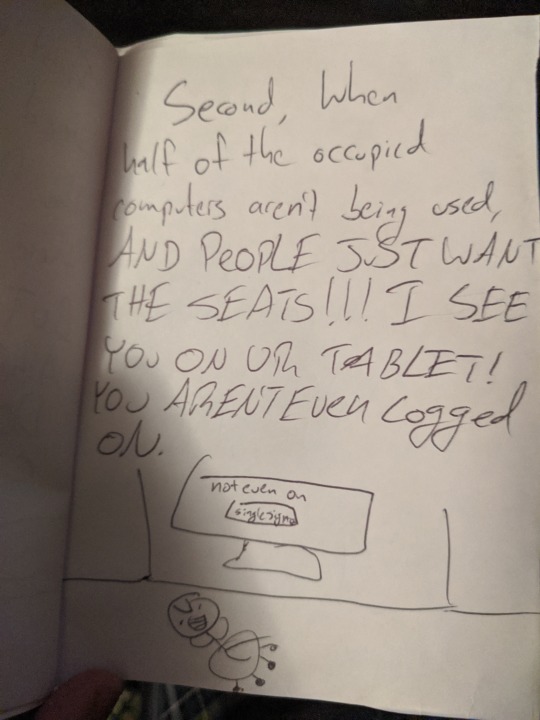 Second, When
half of the occupied
computers aren't being used,
AND PEOPLE JUST WANT
THE SEATS!!! I SEE
YOU ON UR TABLET!
YOU ARENT EVEN Logged
ON.
not even on
single sign